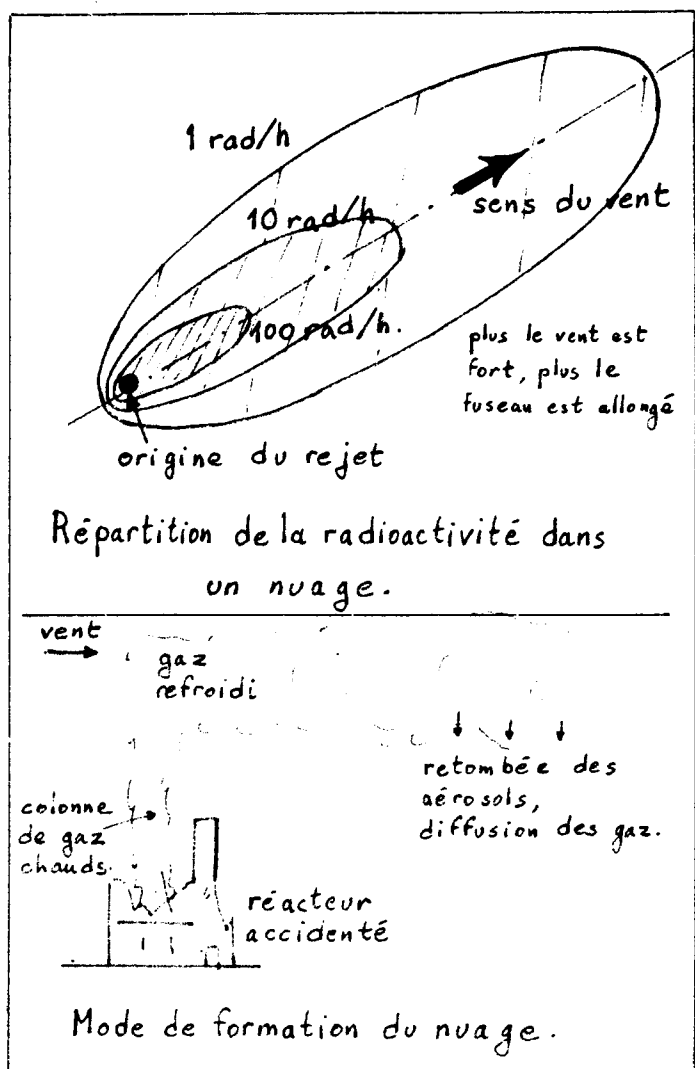 1 rad/h
10 rad/h
100 rad/h.
sens du vent
plus le vent est
fort, plus le
fuseau est allongé
origine du rejet
Répartition de la radioactivité dans
un nuage.
vent
gaz
refroidi
retombée des
aérosols,
diffusion des gaz.
colonne
de gaz
chauds.
réacteur
accidenté
Mode de formation du nuage.